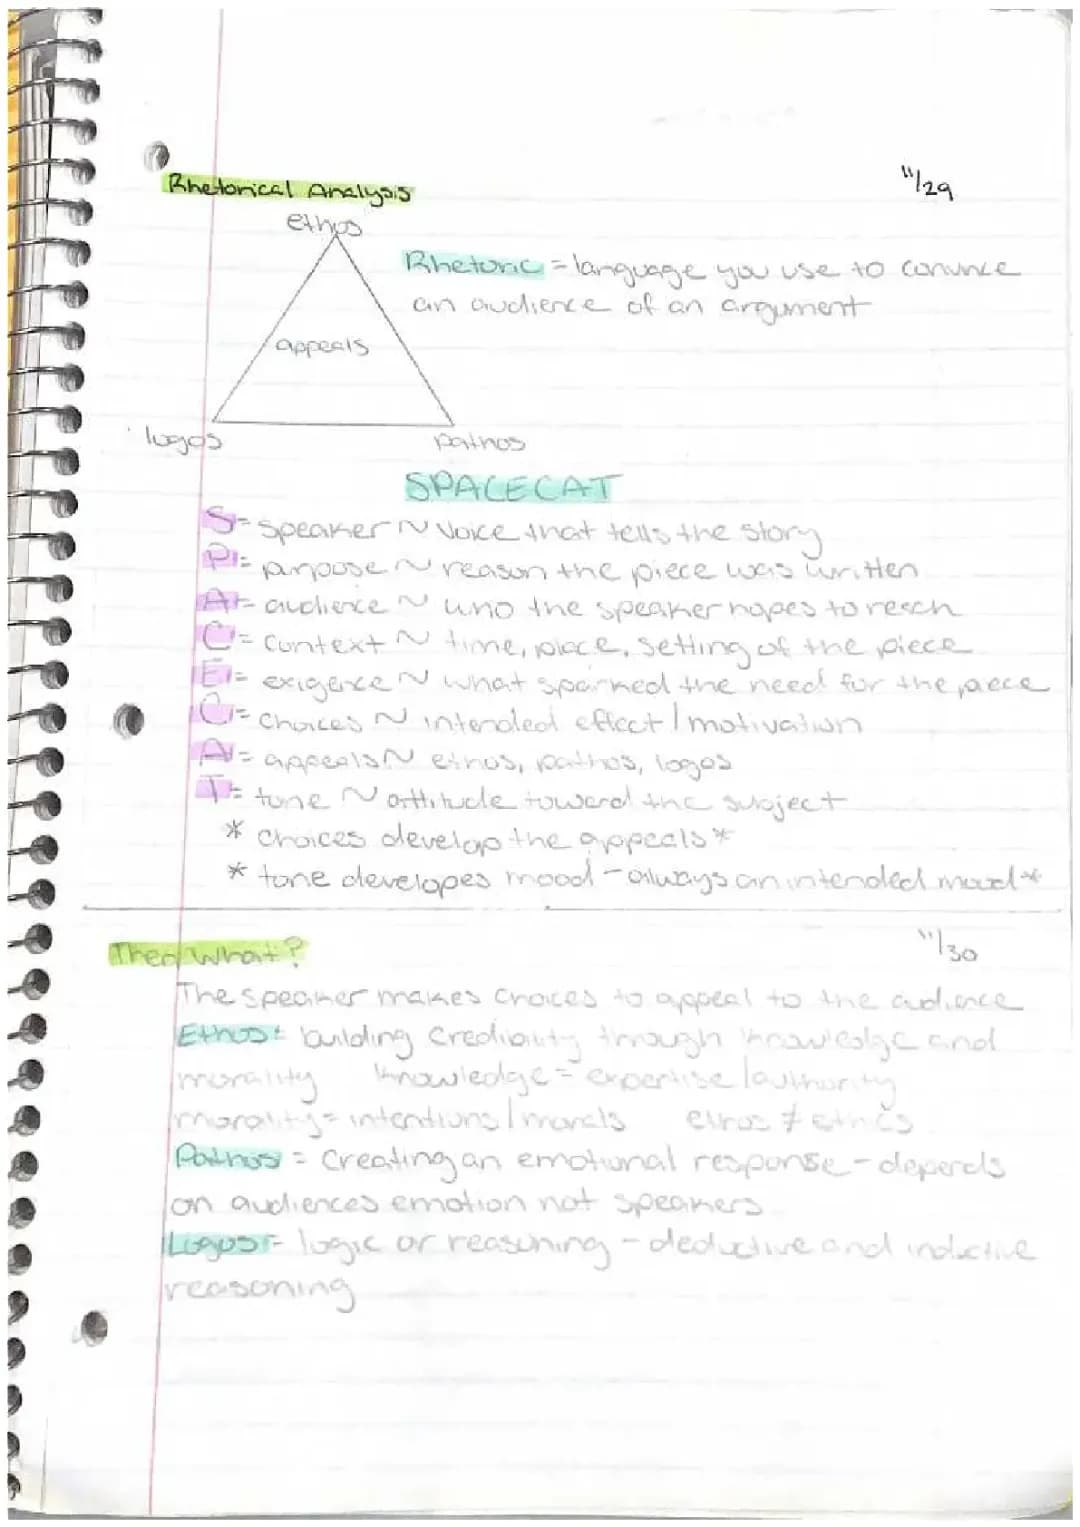 Rhetorical Analysis
11/29
ethos
Rhetoric = language you use to convince
an audience of an argument
appeals
logos
pathos
SPACECAT
S = Speaker ~ Voice that tells the story
P = purpose ~ reason the piece was written
A = audience ~ who the speaker hopes to reach
C = Context ~ time, place, setting of the piece
E = exigence ~ what sparked the need for the piece
C = Choices ~ intended effect / motivation
A = appeals ~ ethos, pathos, logos
T = tone ~ attitude toward the subject
* choices develop the appeals *
* tone developes mood - always an intended mood *
11/30
Then What?
The speaker makes choices to appeal to the audience
Ethos = building credibility through knowledge and
morality knowledge = expertise / authority
morality = intentions / morals ethos ≠ ethics
Pathos = Creating an emotional response - depends
on audiences emotion not speakers
Logos = logic or reasoning - deductive and inductive
reasoning